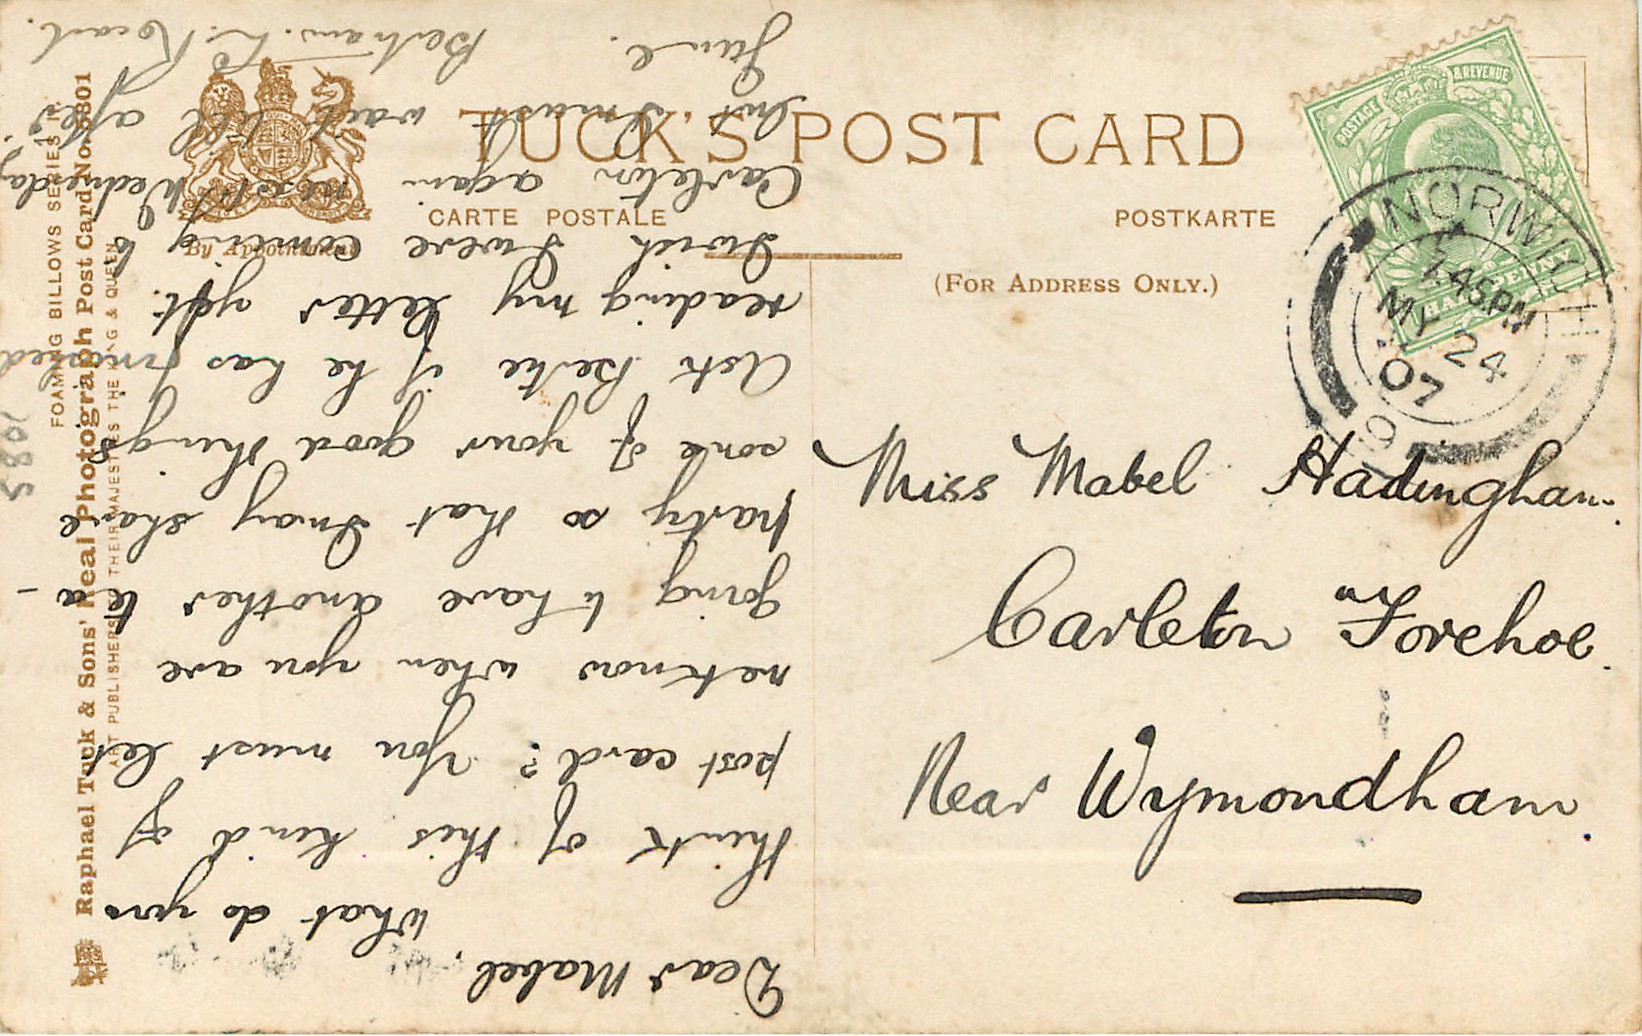 TUCK'S POST CARD
CARTE POSTALE
POSTKARTE
By Appointment
(FOR ADDRESS ONLY.)
POSTAGE & REVENUE
HALFPENNY
NORWICH
1.45PM
MY 24
07
Miss Mabel Hadingham.
Carleton Forehoe.
Near Wymondham.
Dear Mabel,
What do you
think of this kind of
post card? You must let
me know when you are
going to have another tea-
party so that I may share
some of your good things
Ask Bertie if he has finished
reading my letter yet.
I wish I were coming to
Carleton again next Wednesday,
but I must wait till after
June. Bertram. L.
FOAMING BILLOWS SERIES I.
Raphael Tuck & Sons' Real Photograph Post Card No. 3801
ART PUBLISHERS TO THEIR MAJESTIES THE KING & QUEEN